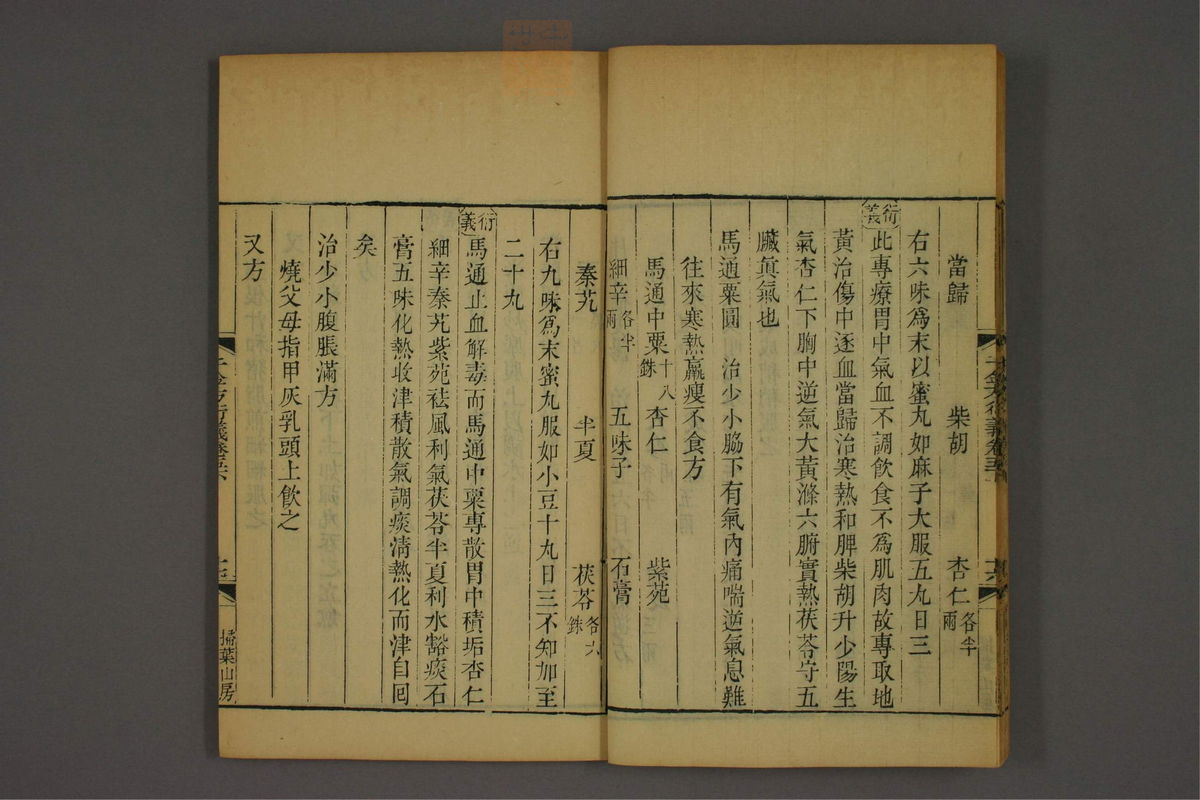 當歸　柴胡　杏仁各半兩
右六味爲末以蜜丸如麻子大服五丸日三
衍義此專療胃中氣血不調飲食不爲肌肉故專取地
黃治傷中逐血當歸治寒熱和脾柴胡升少陽生
氣杏仁下胸中逆氣大黃滌六腑實熱茯苓守五
臟眞氣也
馬通粟圓　治少小脇下有氣內痛喘逆氣息難
往來寒熱羸瘦不食方
馬通中粟十八銖　杏仁　紫苑
細辛各半兩　五味子　石膏
秦艽　半夏　茯苓各六銖
右九味爲末蜜丸服如小豆十丸日三不知加至
二十丸
衍義馬通止血解毒而馬通中粟專散胃中積垢杏仁
細辛秦艽紫苑祛風利氣茯苓半夏利水豁痰石
膏五味化熱收津積散氣調痰淸熱化而津自囘
矣
治少小腹脹滿方
燒父母指甲灰乳頭上飮之
又方
掃葉山房